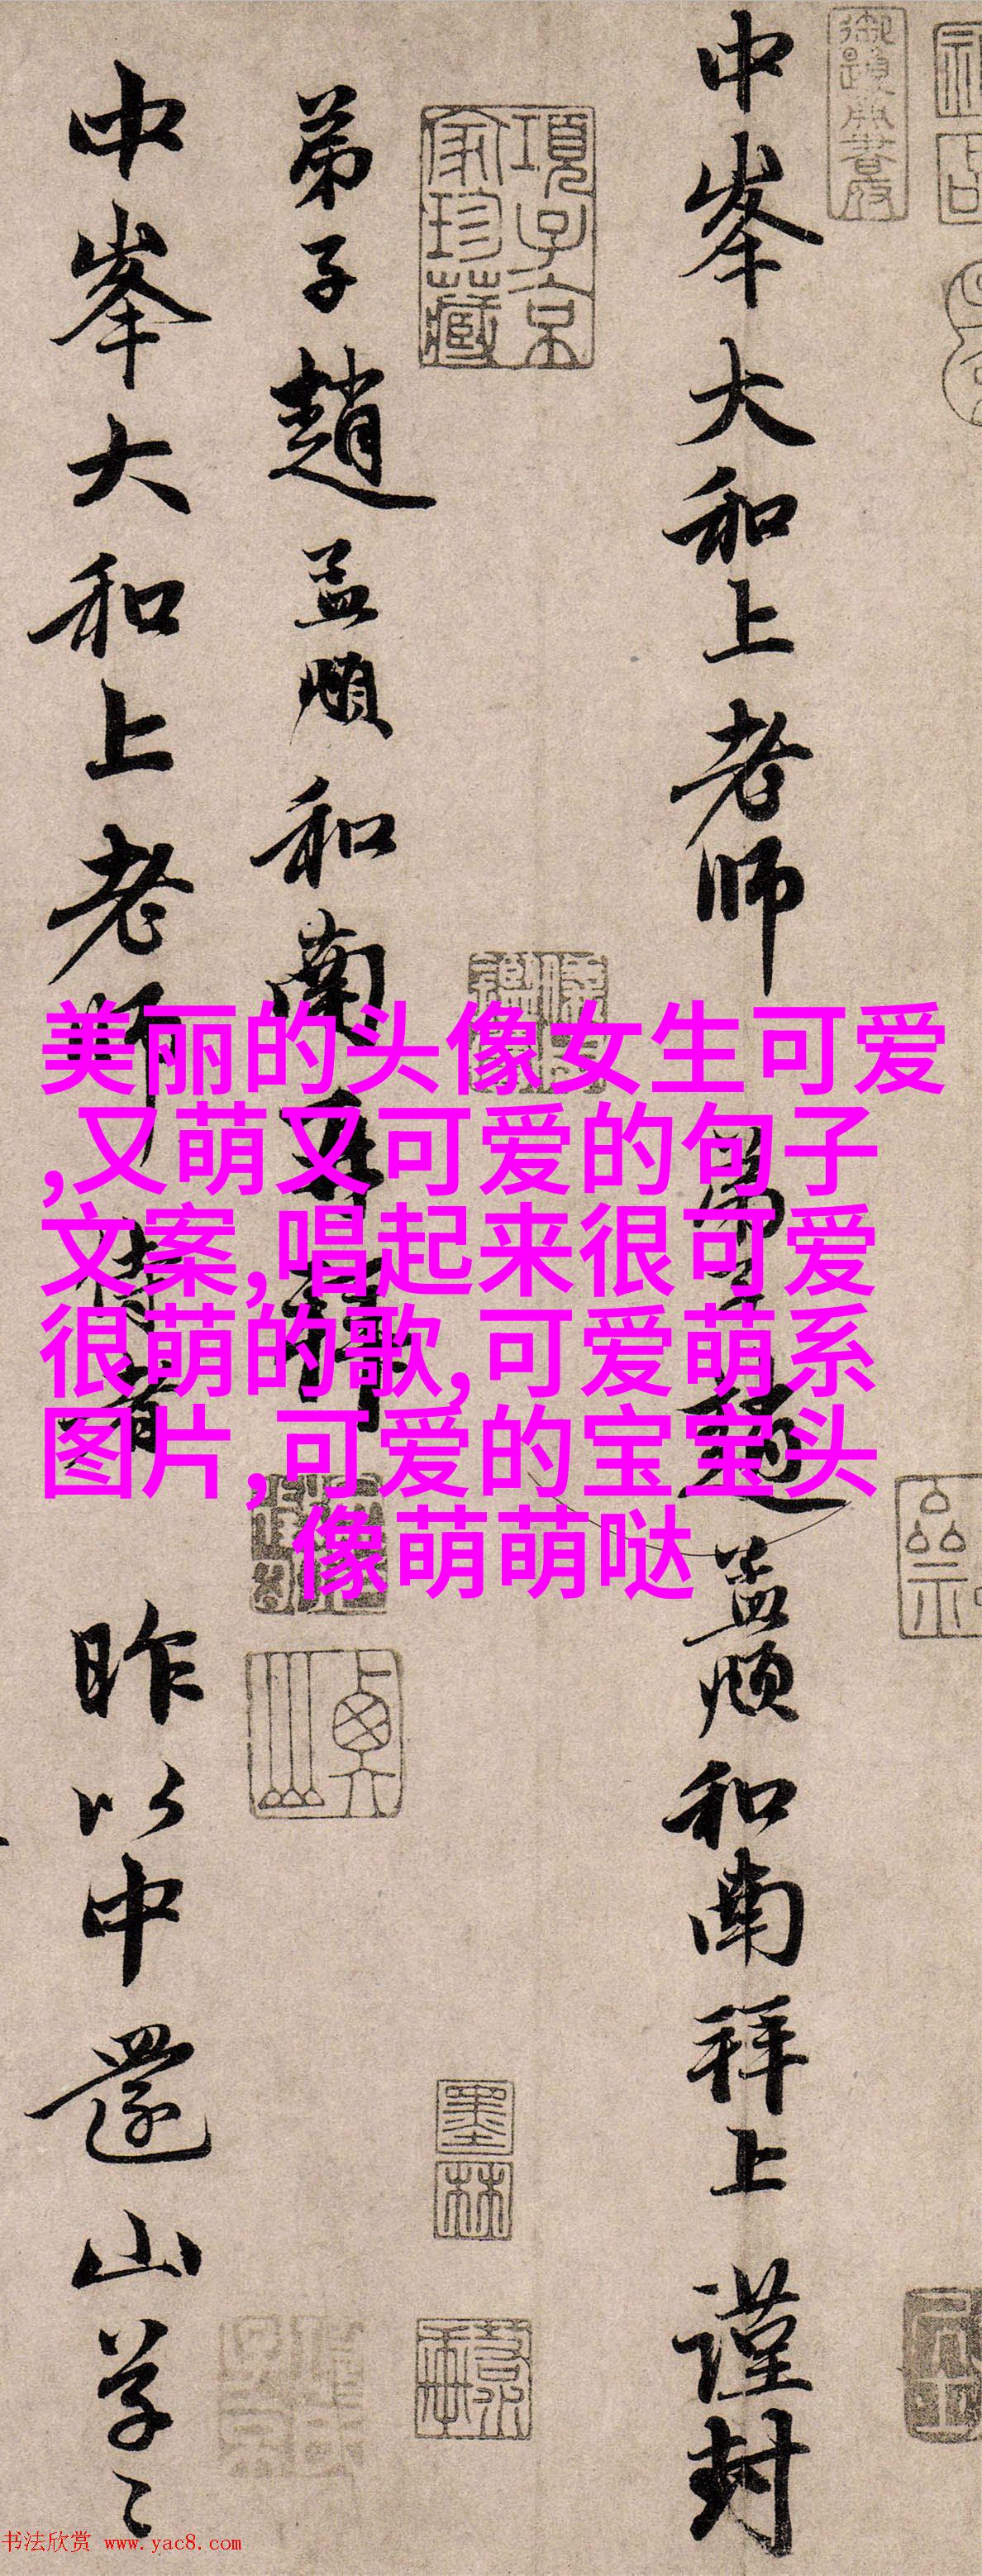 中峯大和上老师
弟子趙孟頫和南拜上 謹封
弟子趙孟頫和南再拜
中峯大和上老师侍者
昨以中還山草々
項子京
家珍藏
墨
林
美丽的头像女生可爱
,又萌又可爱的句子
文案,唱起来很可爱
很萌的歌,可爱萌系
图片,可爱的宝宝头
像萌萌哒
书法欣赏 www.yac8.com